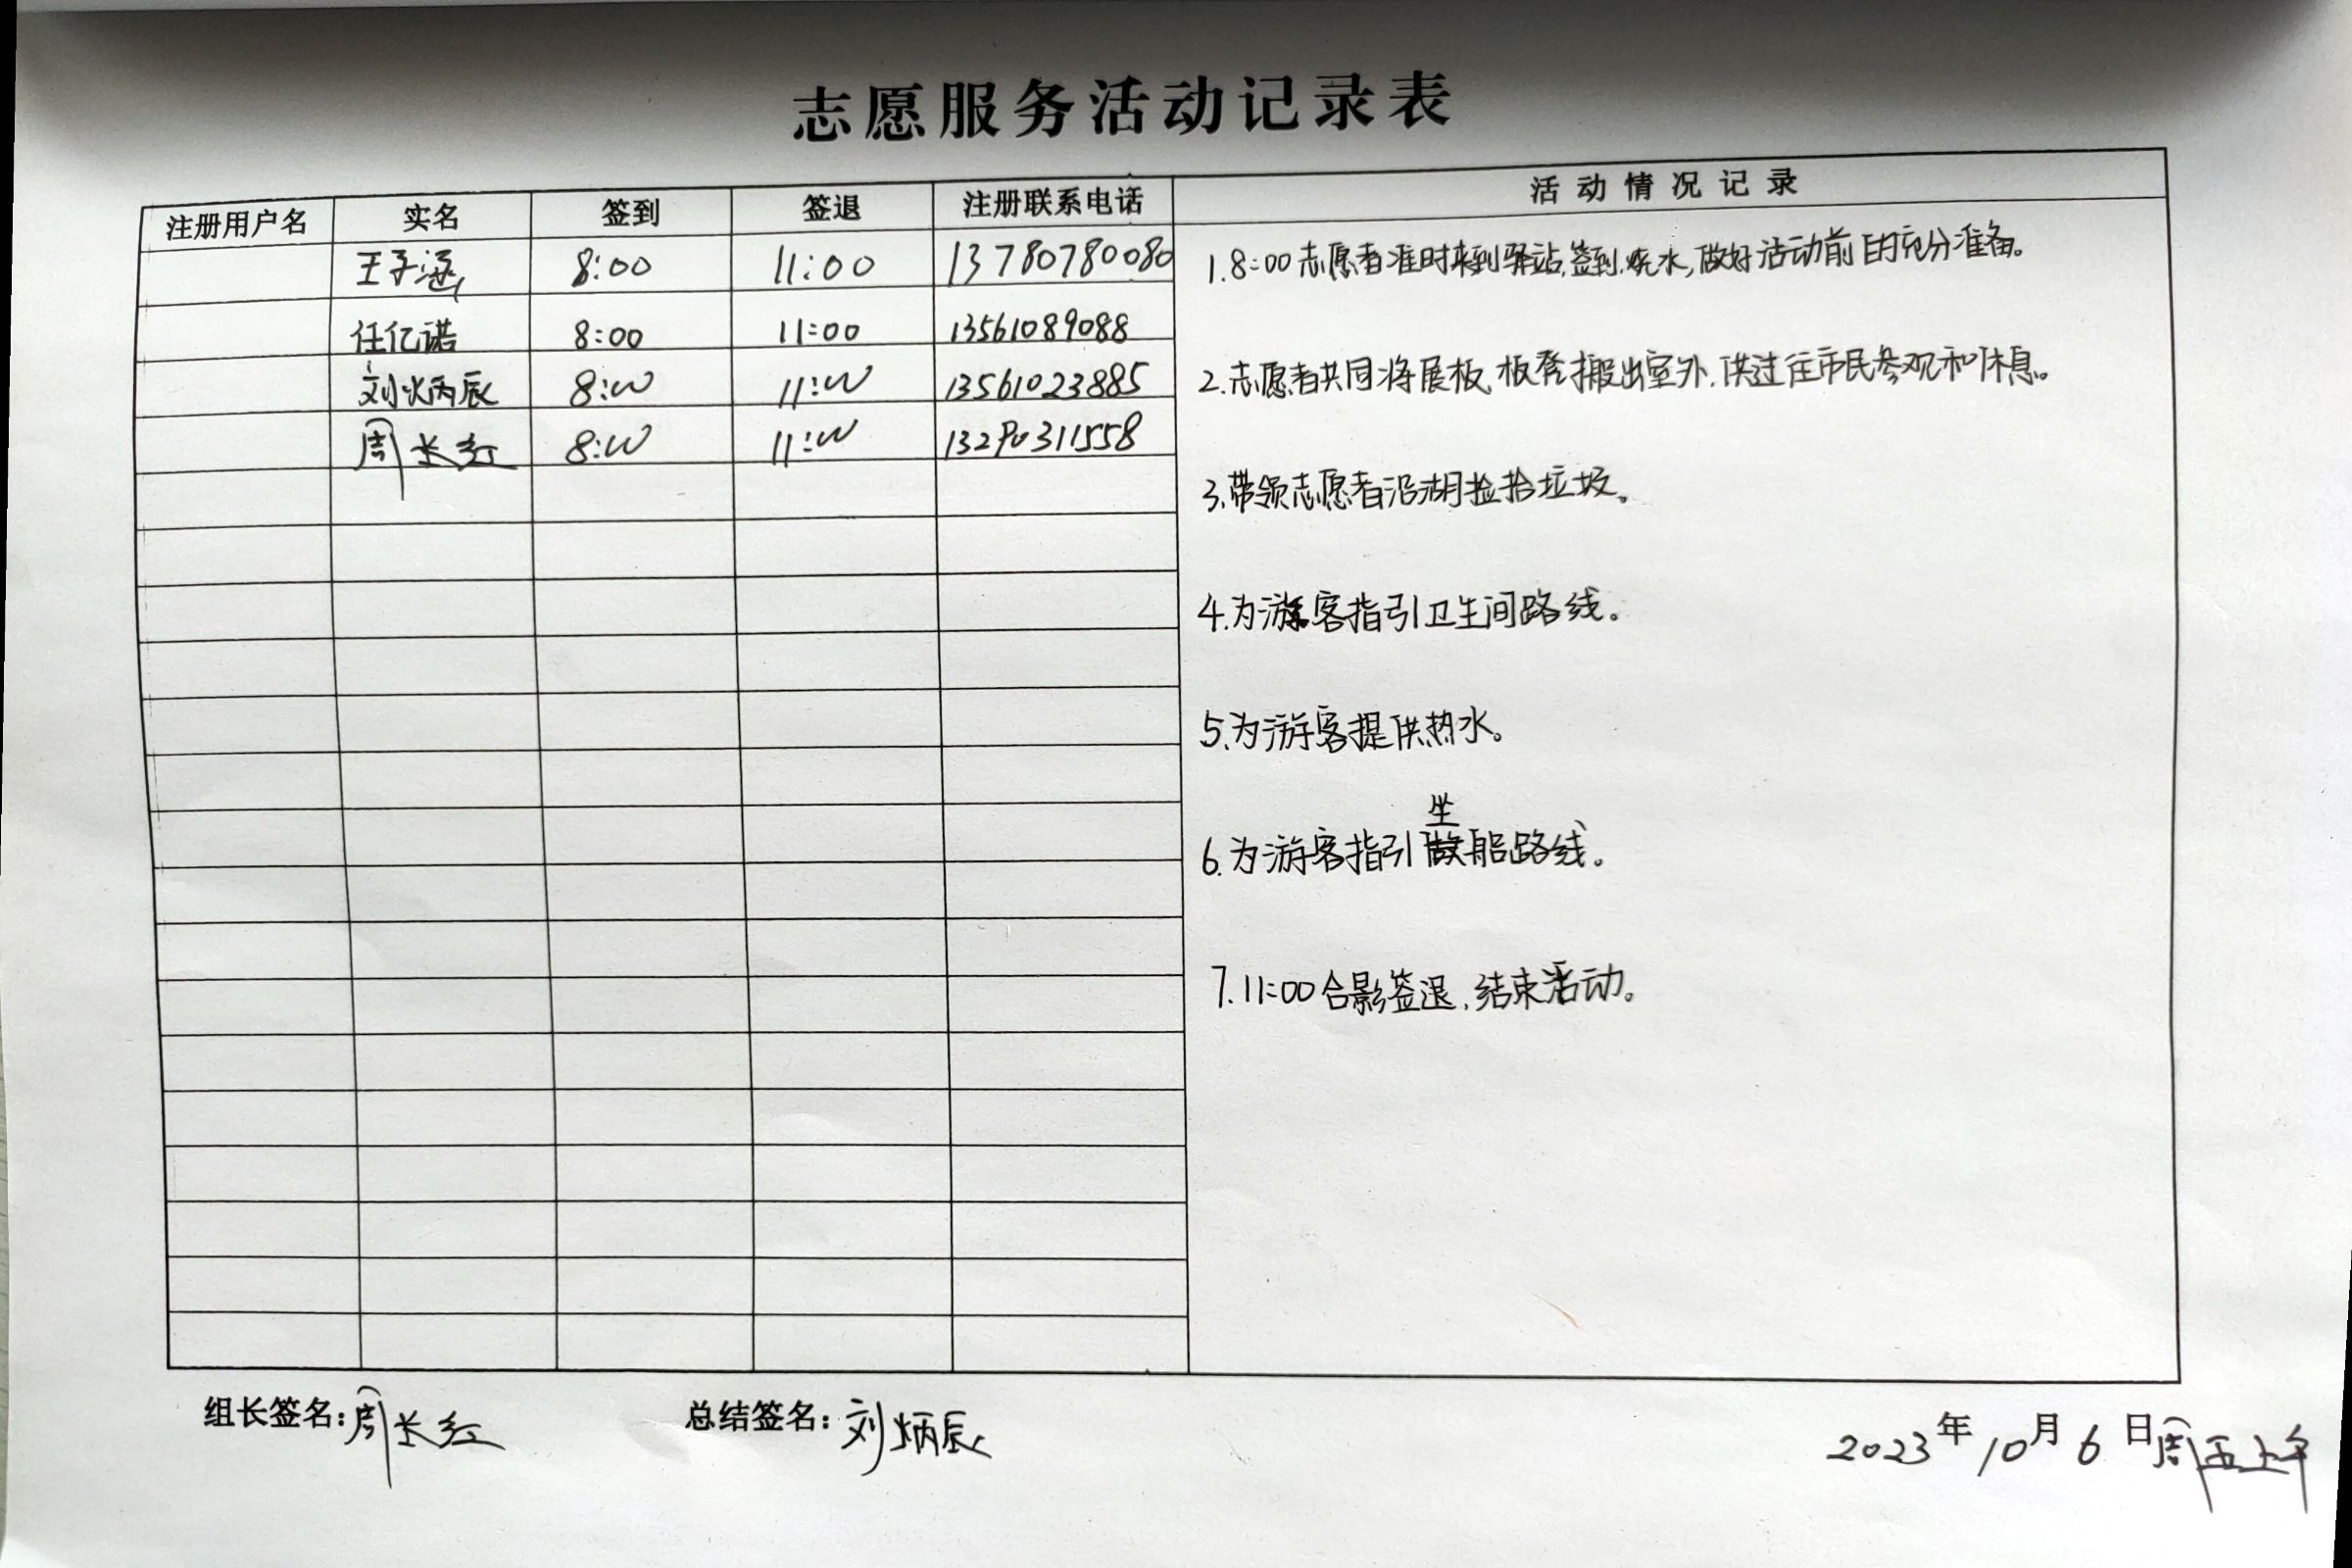 志愿服务活动记录表
注册用户名 实名 签到 签退 注册联系电话 活动情况记录
王子涵 8:00 11:00 13780780080
任亿诺 8:00 11:00 13561089088
刘炳辰 8:00 11:00 13561023885
周长红 8:00 11:00 13290311558
1.8:00志愿者准时来到驿站,签到.烧水,做好活动前的充分准备。
2.志愿者共同将展板,板凳搬出室外,供过往市民参观和休息。
3.带领志愿者沿湖捡拾垃圾。
4.为游客指引卫生间路线。
5.为游客提供热水。
6.为游客指引坐船路线。
7.11:00合影签退,结束活动。
组长签名:周长红 总结签名:刘炳辰 2023年10月6日周五上午